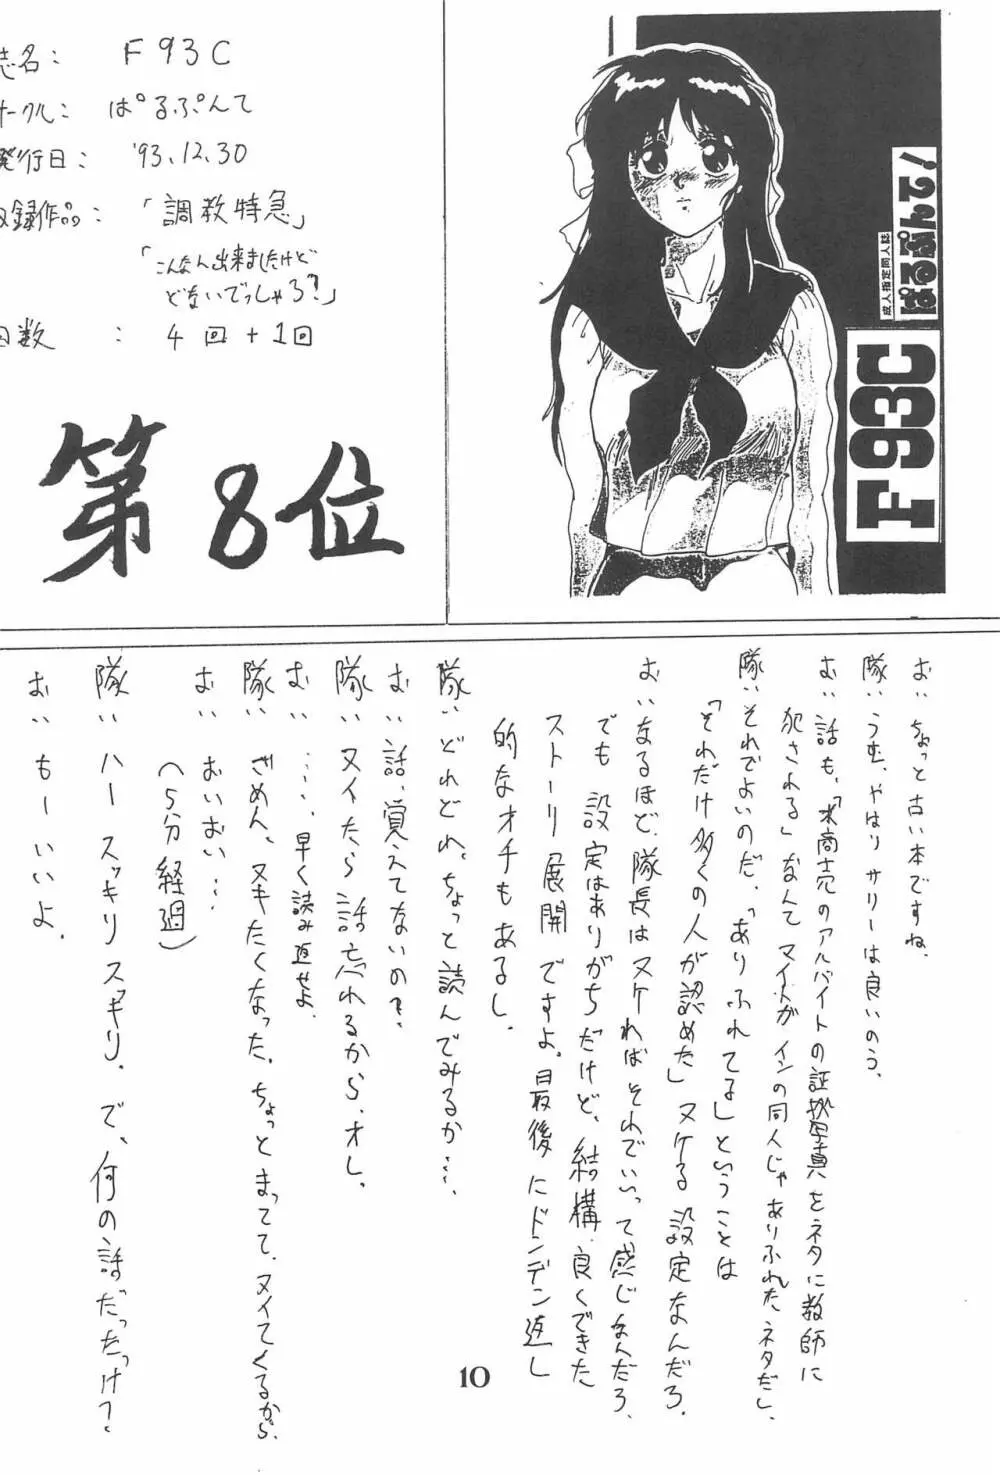 誌名: F93C
サークル: ぱるぷんて
発行日: '93.12.30
収録作品:「調教特急」
「こんなん出来ましたけど
どないでっしゃろ?」
回数 : 4回+1回
第8位
成人指定同人誌
ぱるぷんて!
F93C
お:ちょっと古い本ですね.
隊:うむ、やはりサリーは良いのう.
お:話も、「水商売のアルバイトの証拠写真をネタに教師に
犯される」なんてマイナーの同人じゃありふれた、ネタだし.
隊:それでよいのだ.「ありふれてる」ということは
「それだけ多くの人が認めた」ヌケる設定なんだろ.
お:なるほど、隊長はヌケればそれでいいって感じなんだろ.
でも設定はありがちだけど、結構良くできた
ストーリー展開ですよ.最後にドンデン返し
的なオチもあるし.
隊:どれどれ、ちょっと読んでみるか….
お:話、覚えてないの?
隊:ヌイたら話忘れるから.オレ.
お:….早く読み返せよ
隊:ごめん、ヌキたくなった.ちょっとまってて.ヌイてくるから.
お:おいおい…
(5分経過)
隊:ハースッキリスッキリ.で、何の話だったっけ?
お:もーいいよ.
10